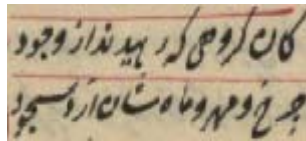 کان کروهی که رهیدند از وجود
چرخ و مهر و ماه شان آرد سجود